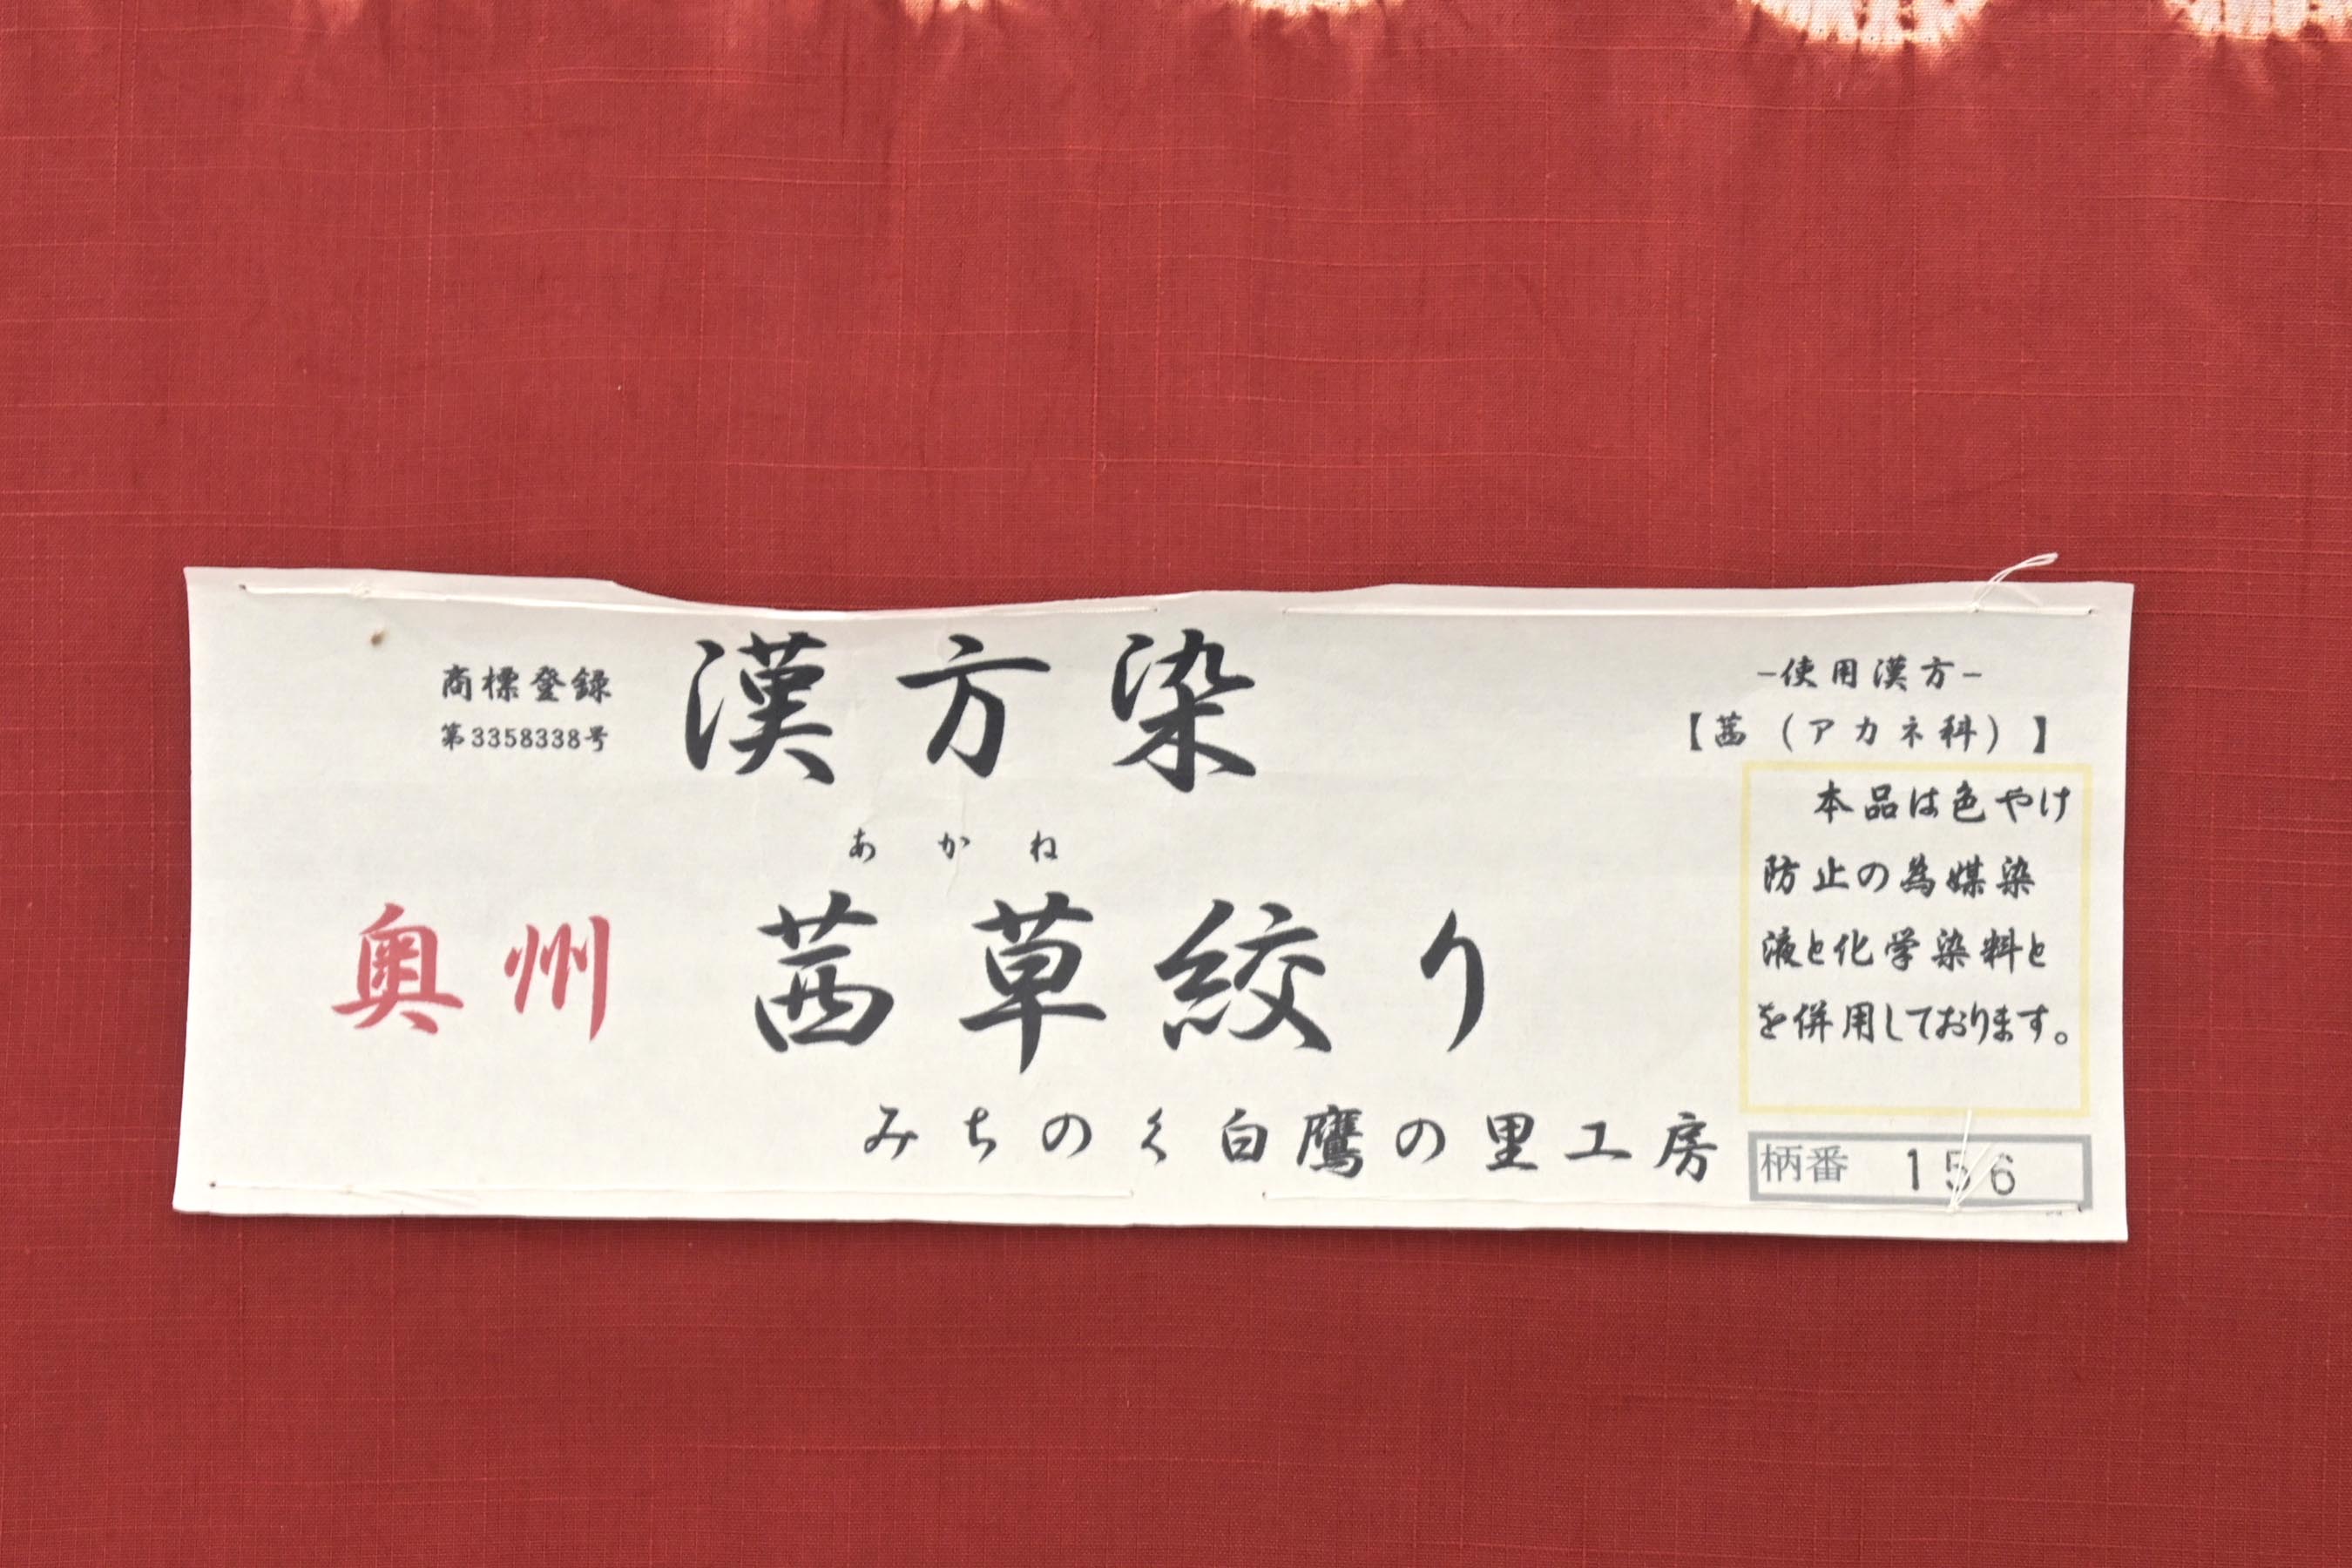 商標登録
第3358338号
漢方染
あかね
奥州 茜草絞り
みちのく白鷹の里工房
-使用漢方-
【茜(アカネ科)】
本品は色やけ
防止の為媒染
液と化学染料と
を併用しております。
柄番 156